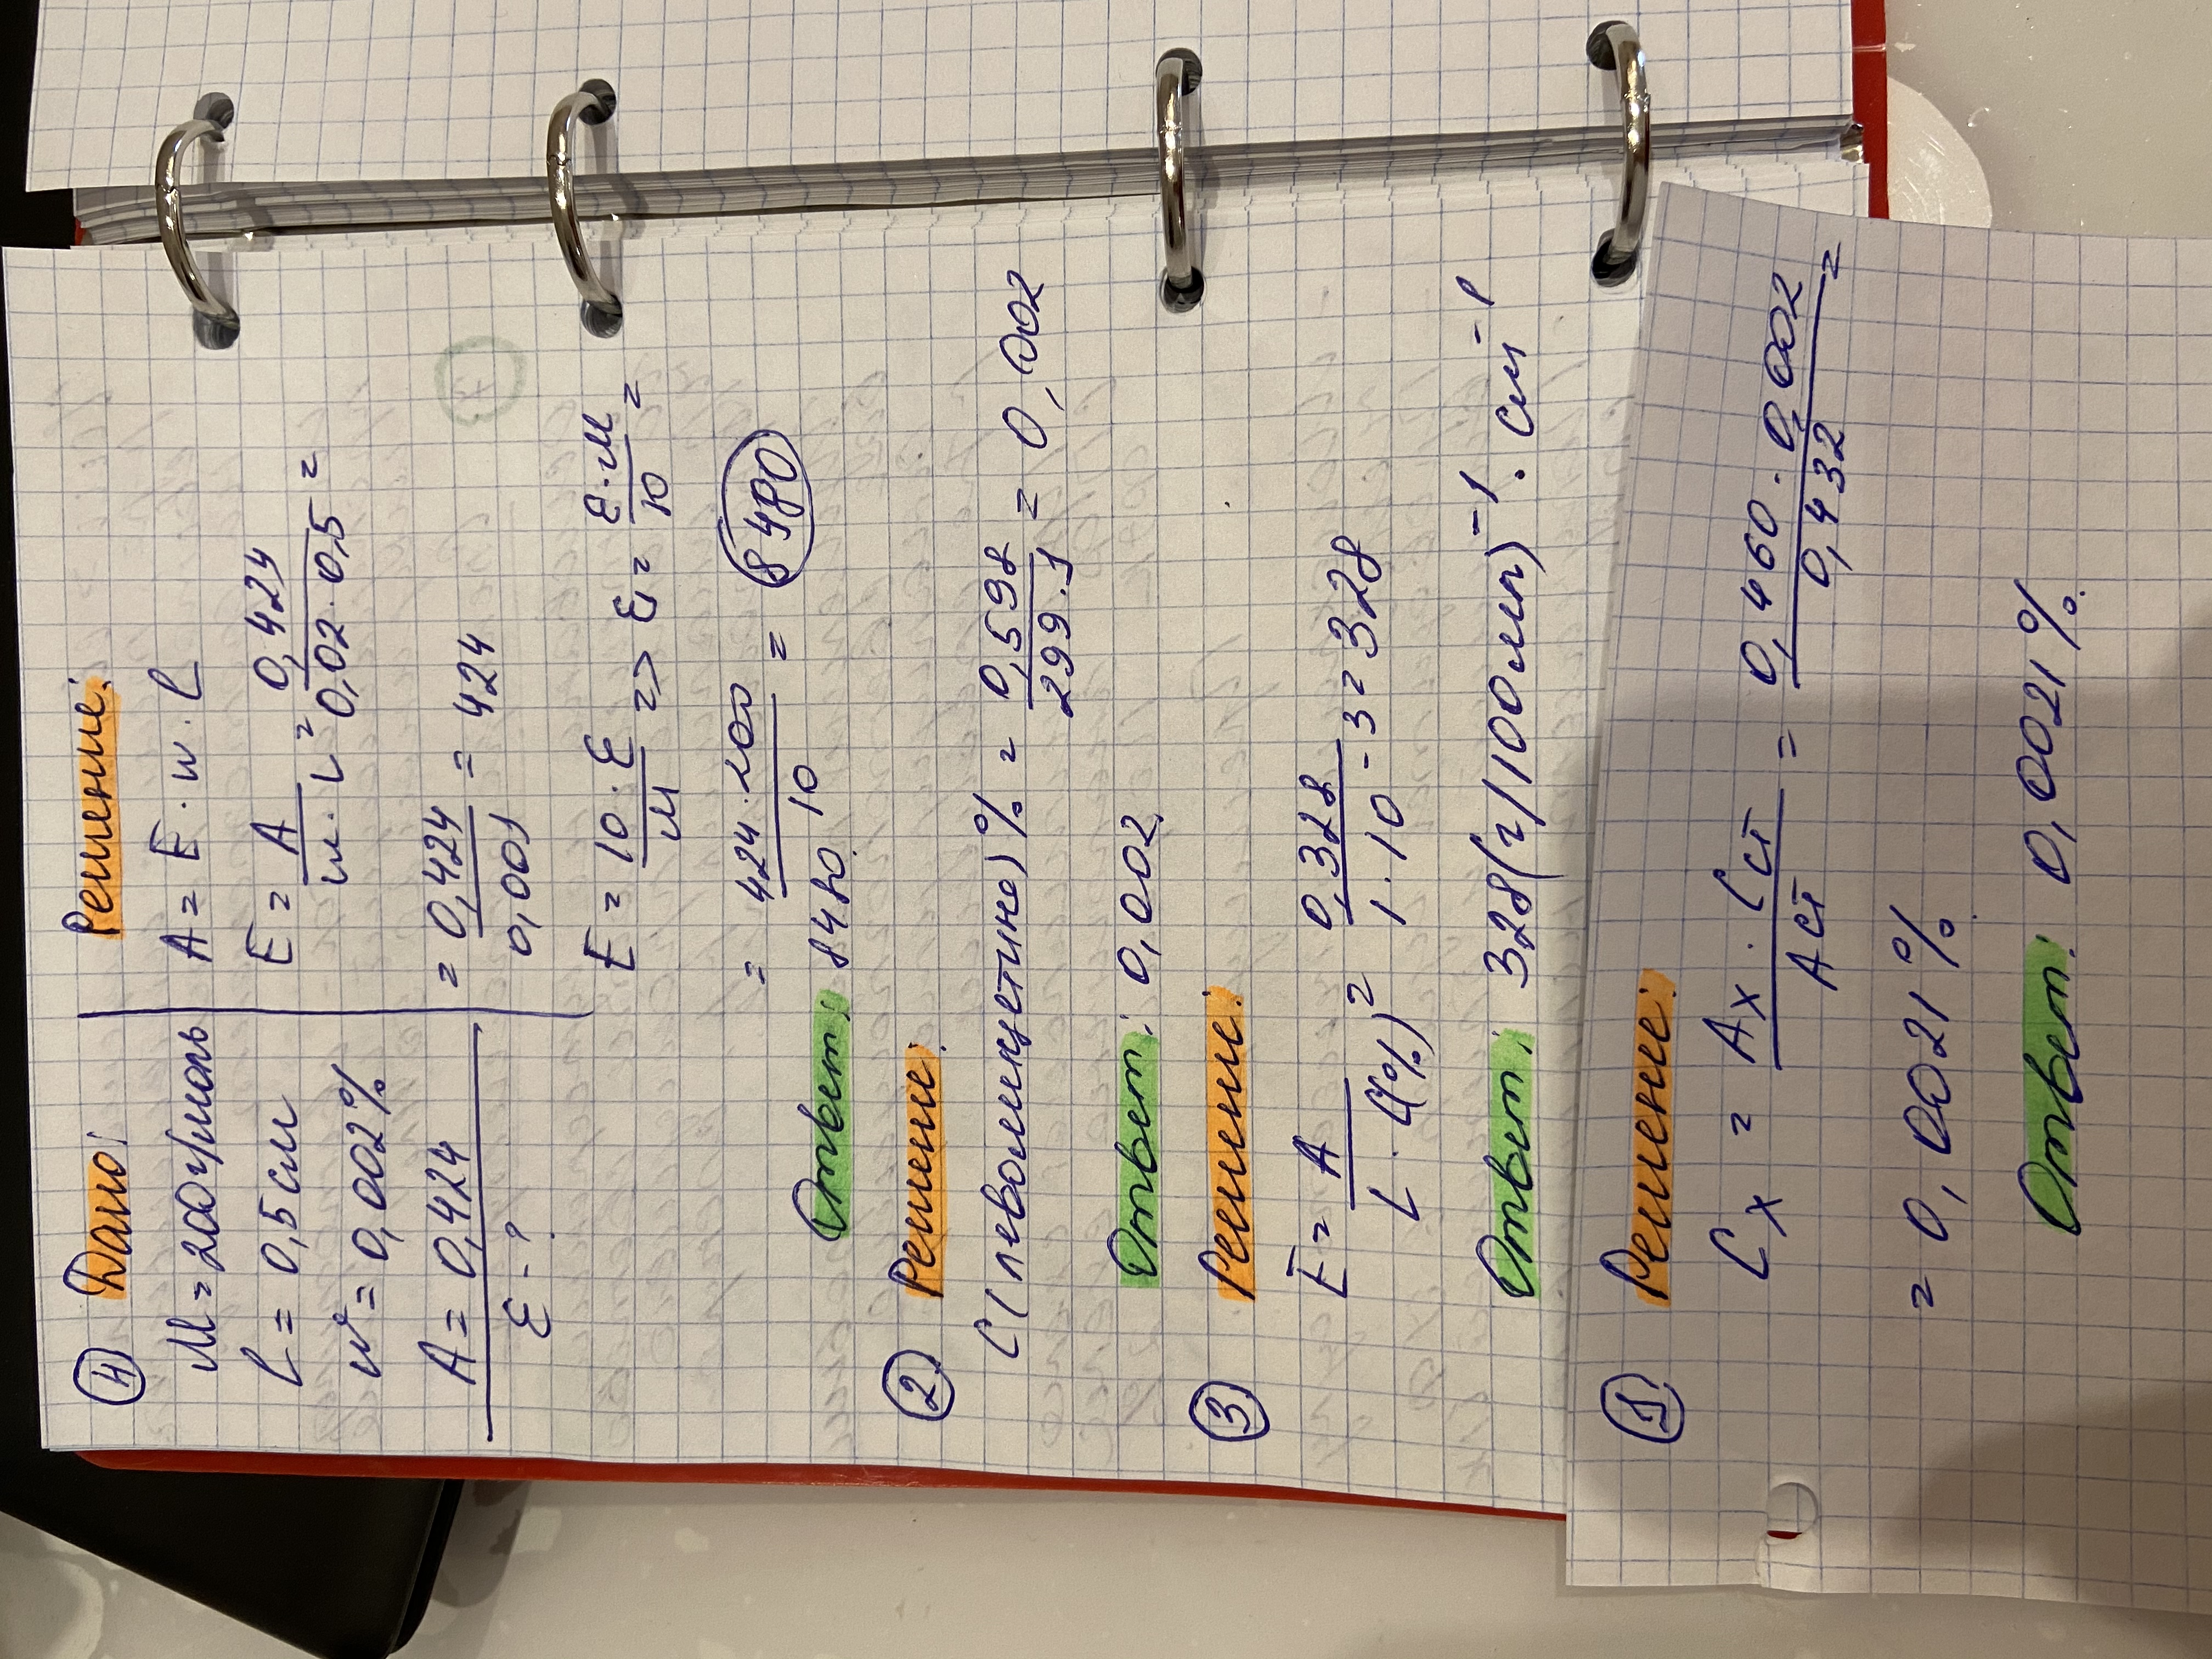 4 Дано:
M = 200 г/моль
l = 0,5 см
w = 0,002 %
A = 0,424
ε - ?
Решение:
A = E · w · l
E = A / w · L = 0,424 / 0,02 · 0,5 =
= 0,424 / 0,001 = 424
E = 10 · ε / M => ε = ε · M / 10 =
= 424 · 200 / 10 = 8480
Ответ: 8480.
2 Решение:
C (левомицетина) % = 0,598 / 299 · 1 = 0,002
Ответ: 0,002.
3 Решение:
E = A / L · C(%) = 0,328 / 1 · 10⁻³ = 328
Ответ: 328 (г/100 мл)⁻¹ · см⁻¹
1 Решение:
Cх = Aх · Cст / Aст = 0,460 · 0,002 / 0,432 =
= 0,0021 %.
Ответ: 0,0021 %.